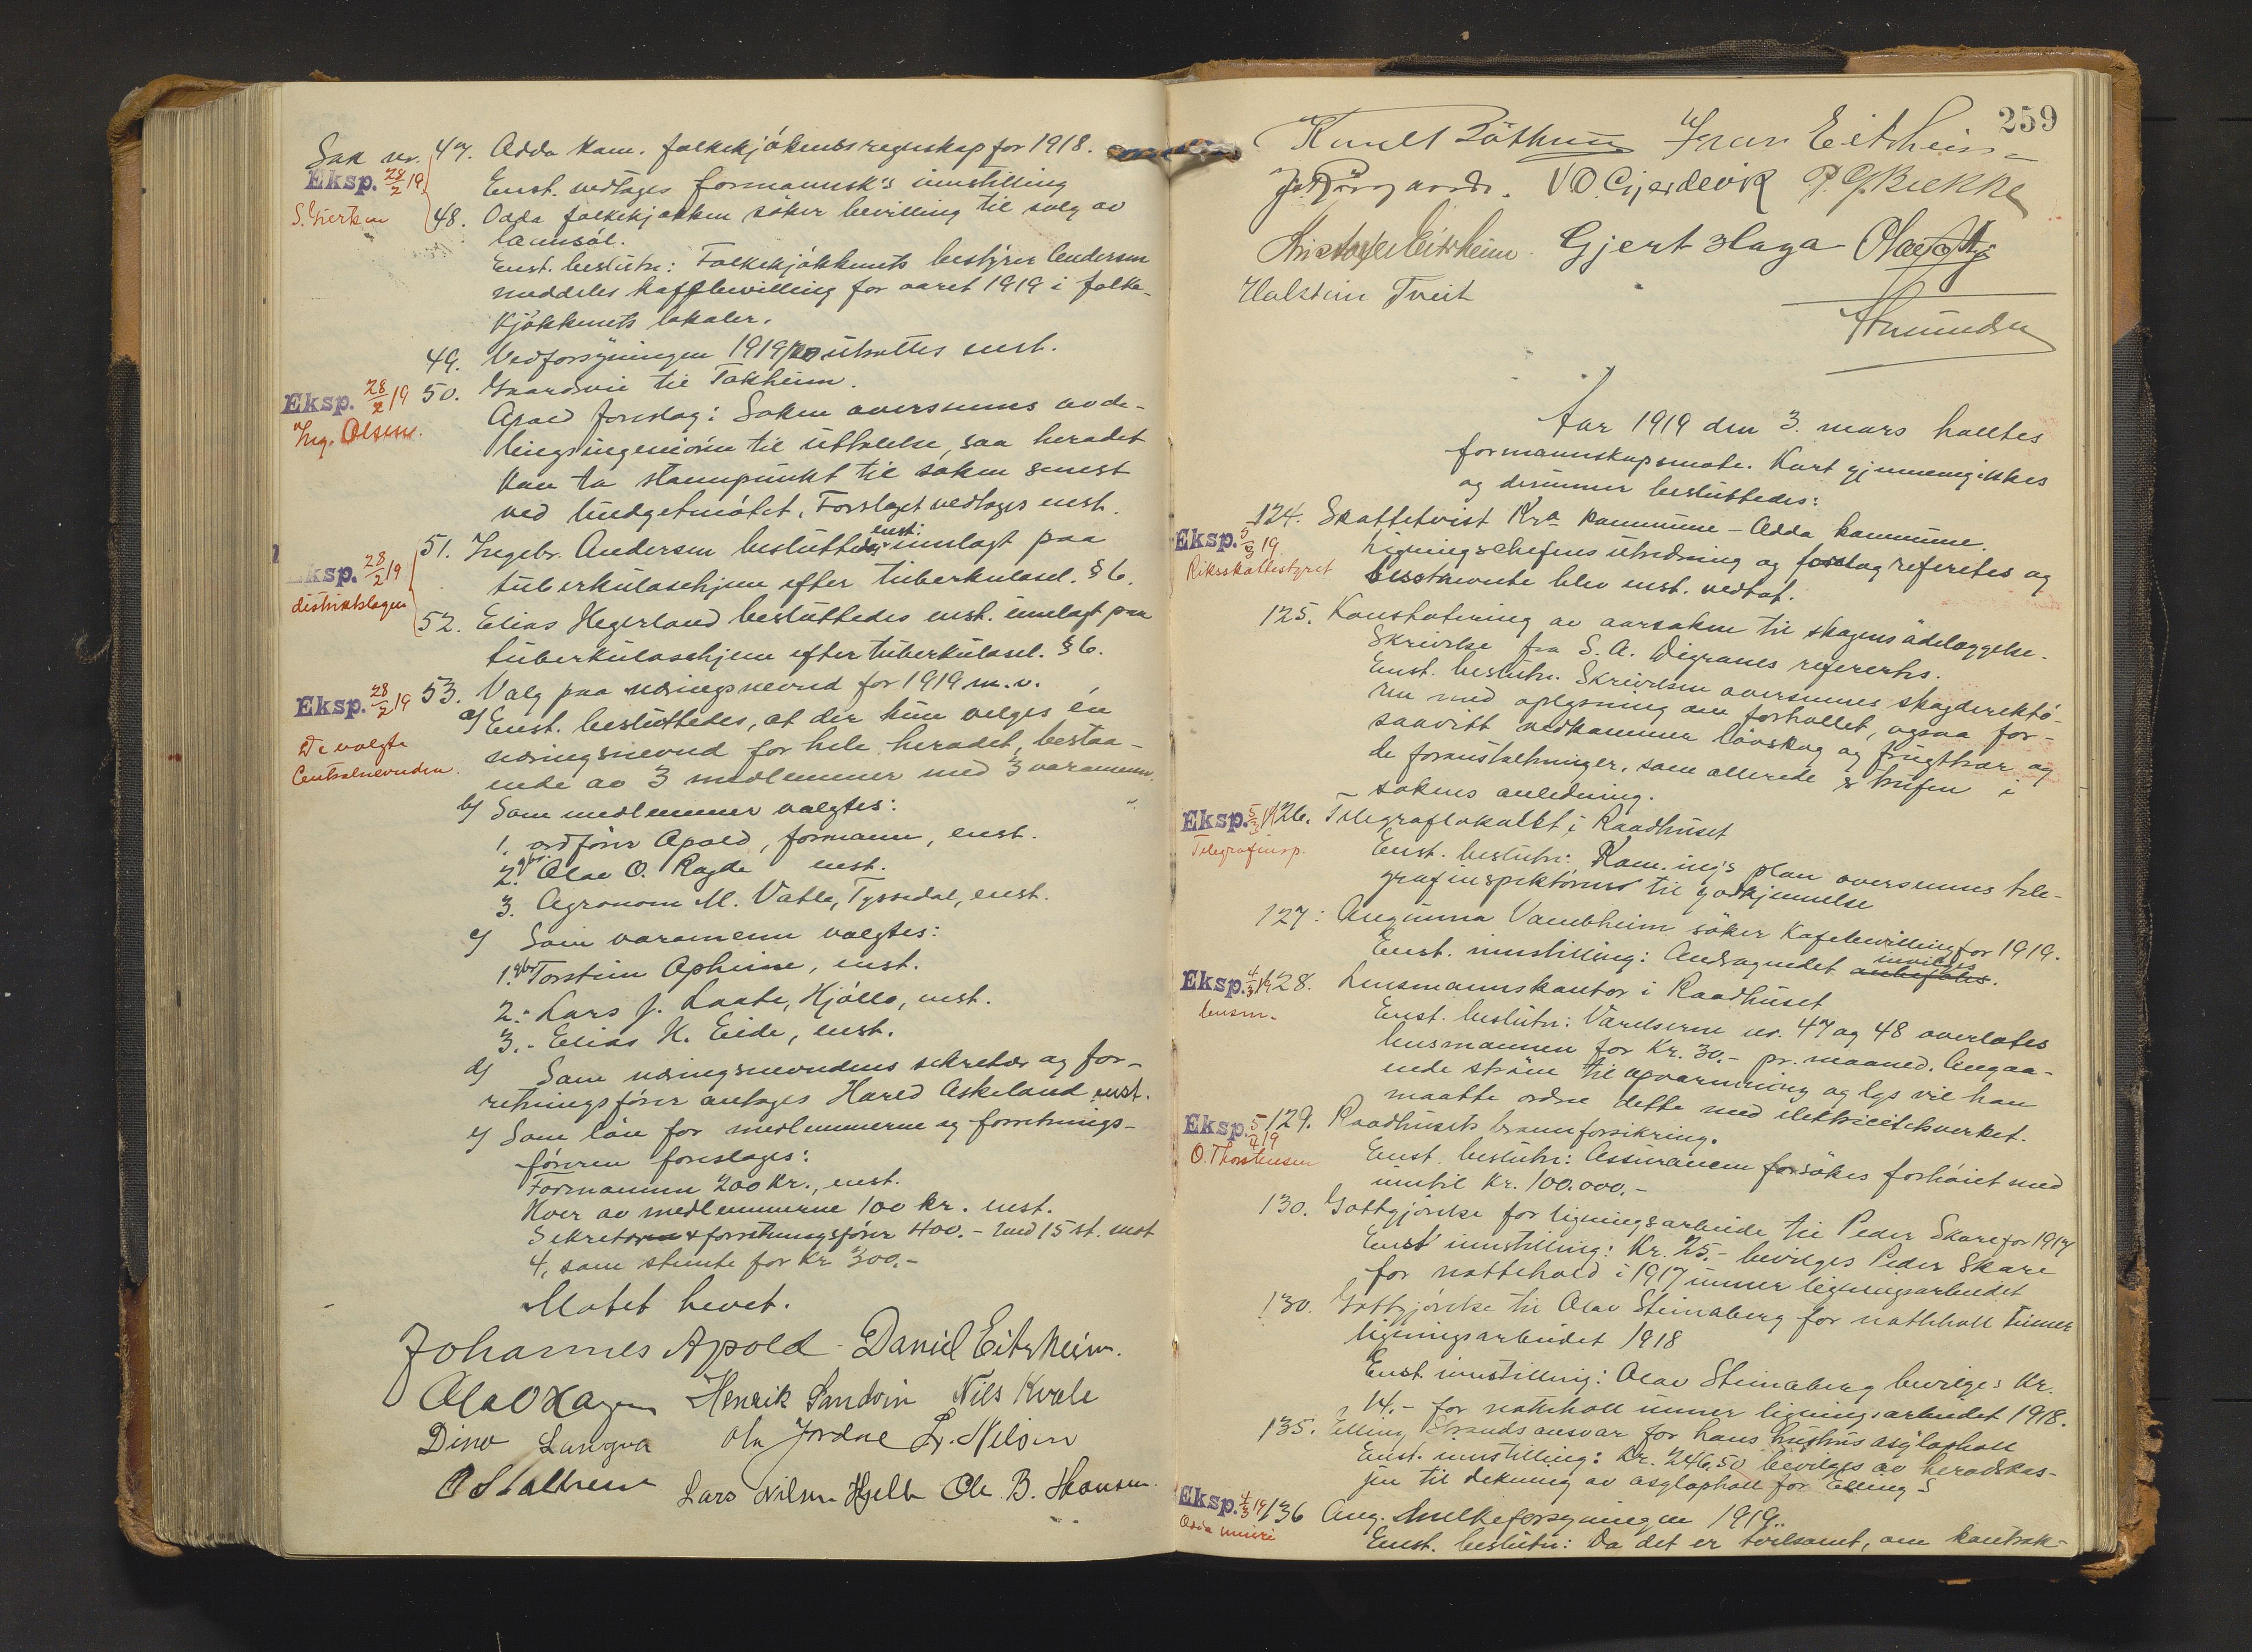 Sak nr. 47. Odda kom. folkekjökkens regnskap for 1918.
Eksp. 28/2 19
Enst. vedtages formannsk's innstilling
S. Giertsen
48. Odda folkekjökken söker bevilling til salg av
lannsöl.
Enst. beslutn: Folkekjökkenets bestyrer Andersen
meddeles kaffebevilling for aaret 1919 i folke-
kjökkenets lokaler.
49. Vedforsyningen 1919/20 utsættes enst.
Eksp. 28/2 19
50. Gaardsvei til Tokheim.
Ing. Olsen.
Apold foreslog: Saken oversennes avde-
lingsingeniören til uttalelse, saa heradet
kan ta stannpunkt til saken senest
ved budgetmötet. Forslaget vedtages enst.
51. Ingebr. Andersen besluttedes enst. innlagt paa
Eksp. 28/2 19
tuberkulosehjem efter tuberkulosel. § 6.
distriktslægen
52. Elias Hegerland besluttedes enst. innlagt paa
tuberkulosehjem efter tuberkulosel. § 6.
Eksp. 28/2 19
53. Valg paa næringsnevnd for 1919 m. v.
a) Enst. besluttedes, at der kun velges én
De valgte
Centralnevnden.
næringsnevnd for hele heradet, bestaa-
ende av 3 medlemmer med 3 varamenn.
b) Som medlemmer valgtes:
1. ordförer Apold, formann, enst.
2. gbr. Olav O. Ragde enst.
3. Agronom M. Vatle, Tyssedal, enst.
c) Som varamenn valgtes:
1. gbr Torstein Opheim, enst.
2. - Lars J. Laate, Hjöllo, enst.
3. - Elias H. Eide, enst.
d) Som næringsnevndens sekretær og for-
retningsförer antages Harald Askeland enst.
e) Som lön for medlemmerne og forretnings-
föreren foreslages:
Formannen 200 kr., enst.
Hver av medlemmerne 100 kr. enst.
Sekretæren & forretningsförer 400.- med 15 st. mot
4, som stemte for kr 300.-
Møtet hevet.
Johannes Apold Daniel Eitrheim.
Ola O Hagen Henrik Sandvin Nils Kvale
Lars Nilsen Hjelle Ole B. Hansen.
259
Knut Eitrheim
V O. Gjerdevik P. G. Bekke
Kristoffer Eitrheim. Gjert Haga
Halstein Tveit
Amundsen
Aar 1919 den 3. mars holltes
formannskapsmøte. Kart gjennemgikkes
og derunner besluttedes:
124. Skattetvist Kra kommune - Odda kommune.
Eksp. 5/3 19
Riksskattestyret
Ligningschefens utredning og forslag referertes og
sisstnevnte blev enst. vedtat.
125. Konstatering av aarsaken til skogens ödelæggelse.
Skrivelse fra S. A. Digranes refererts.
Enst. beslutn. Skrivelsen oversennes skogdirektö-
ren med oplysning om forhollet, ogsaa for-
saavitt vedkommer lövskog og frugttrær og
de foranstaltninger, som allerede er trufen i
sakens anledning.
Eksp. 5/3 19 126. Telegraflokalet i Raadhuset
Telegrafinsp.
Enst. beslutn: Kom. ing's plan oversennes tele-
grafinspektören til godkjennelse
127: Angunna Vambheim söker kafebevilling for 1919.
Enst. innstilling: Andragendet anbefales. innvilges
Eksp. 4/3 19 128. Lensmannskontor i Raadhuset
lensm.
Enst. beslutn: Værelserne nr. 47 og 48 overlates
lensmannen for kr. 30.- pr. maaned. Angaa-
ende ström til opvarmning og lys vil han
maatte ordne dette med elektricitetsverket.
Eksp. 5/4 19 129. Raadhusets brannforsikring.
O. Thorstensen
Enst. beslutn: Assurancen forsökes forhöiet med
inntil kr. 100.000.-
130. Gottgjörelse for ligningsarbeide til Peder Skare for 1917
Enst innstilling: Kr. 25.- bevilges Peder Skare
for nattehold i 1917 unner ligningsarbeidet
130. Gottgjörelse til Olav Steinaberg for natthold unner
ligningsarbeidet 1918
Enst. innstilling: Olav Steinaberg bevilges Kr.
14.- for natthold unner ligningsarbeidet 1918.
135. Elling Strands ansvar for hans hustrus asylophold
Enst. innstilling: Kr. 246,50 bevilges av heradskas-
sen til dekning av asylophold for Elling S
Eksp. 4/3 19 136 Ang. Melkeforsyningen 1919.
Odda meieri
Enst. beslutn: Da det er tvilsomt, om kontrak-